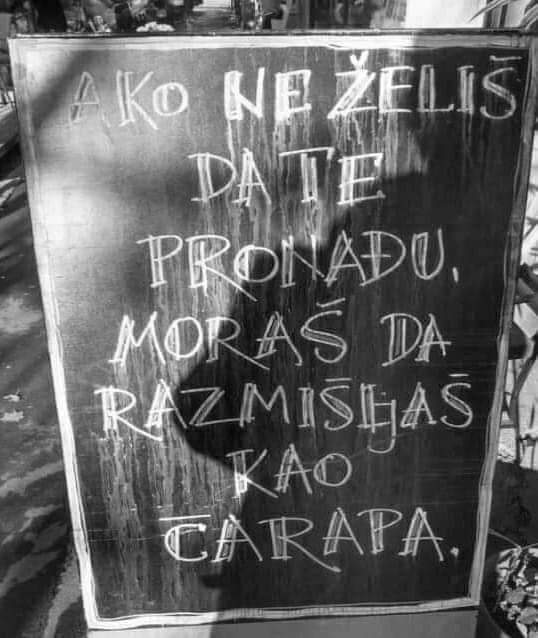 AKO NE ŽELIŠ
DA TE
PRONAĐU,
MORAŠ DA
RAZMIŠLJAŠ
KAO
ČARAPA.